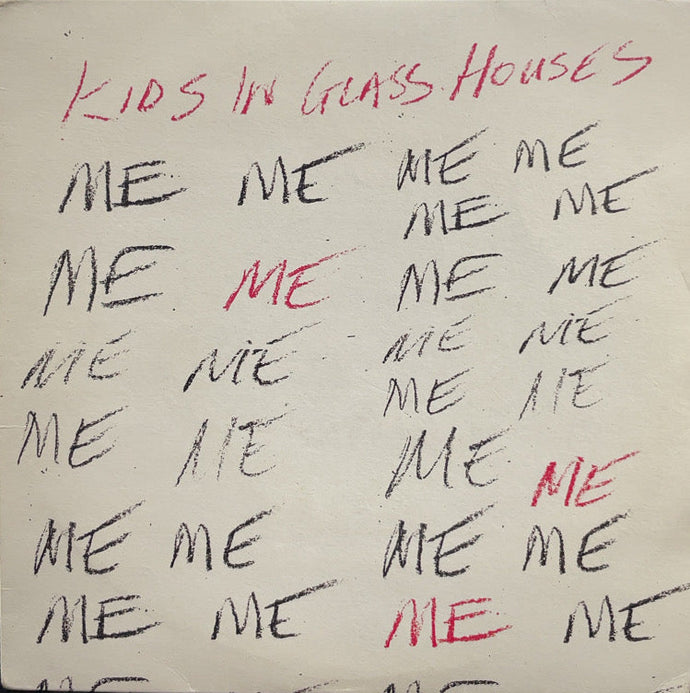 KIDS IN GLASS HOUSES
ME ME ME ME
ME ME
ME ME ME ME
ME ME ME ME
ME ME
ME ME ME ME
ME ME ME ME
ME ME ME ME